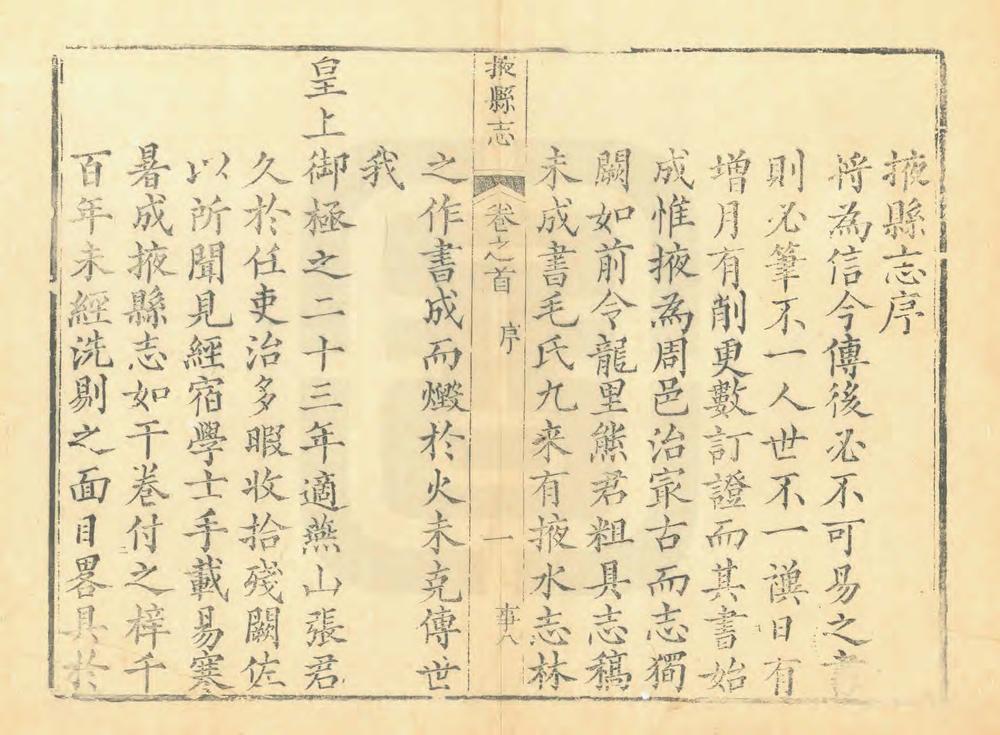 掖縣志序
將為信今傳後必不可易之書
則必筆不一人世不一謨日有
增月有削更數訂證而其書始
成惟掖為周邑治㝡古而志獨
闕如前令龍里熊君粗具志稿
未成書毛氏九来有掖水志林
掖縣志
卷之首
序
一
之作書成而燬於火未克傳世
我
皇上御極之二十三年適燕山張君
久於任吏治多暇收拾殘闕佐
以所聞見經宿學士手載易寒
暑成掖縣志如干卷付之梓千
百年未經洗剔之面目畧具於